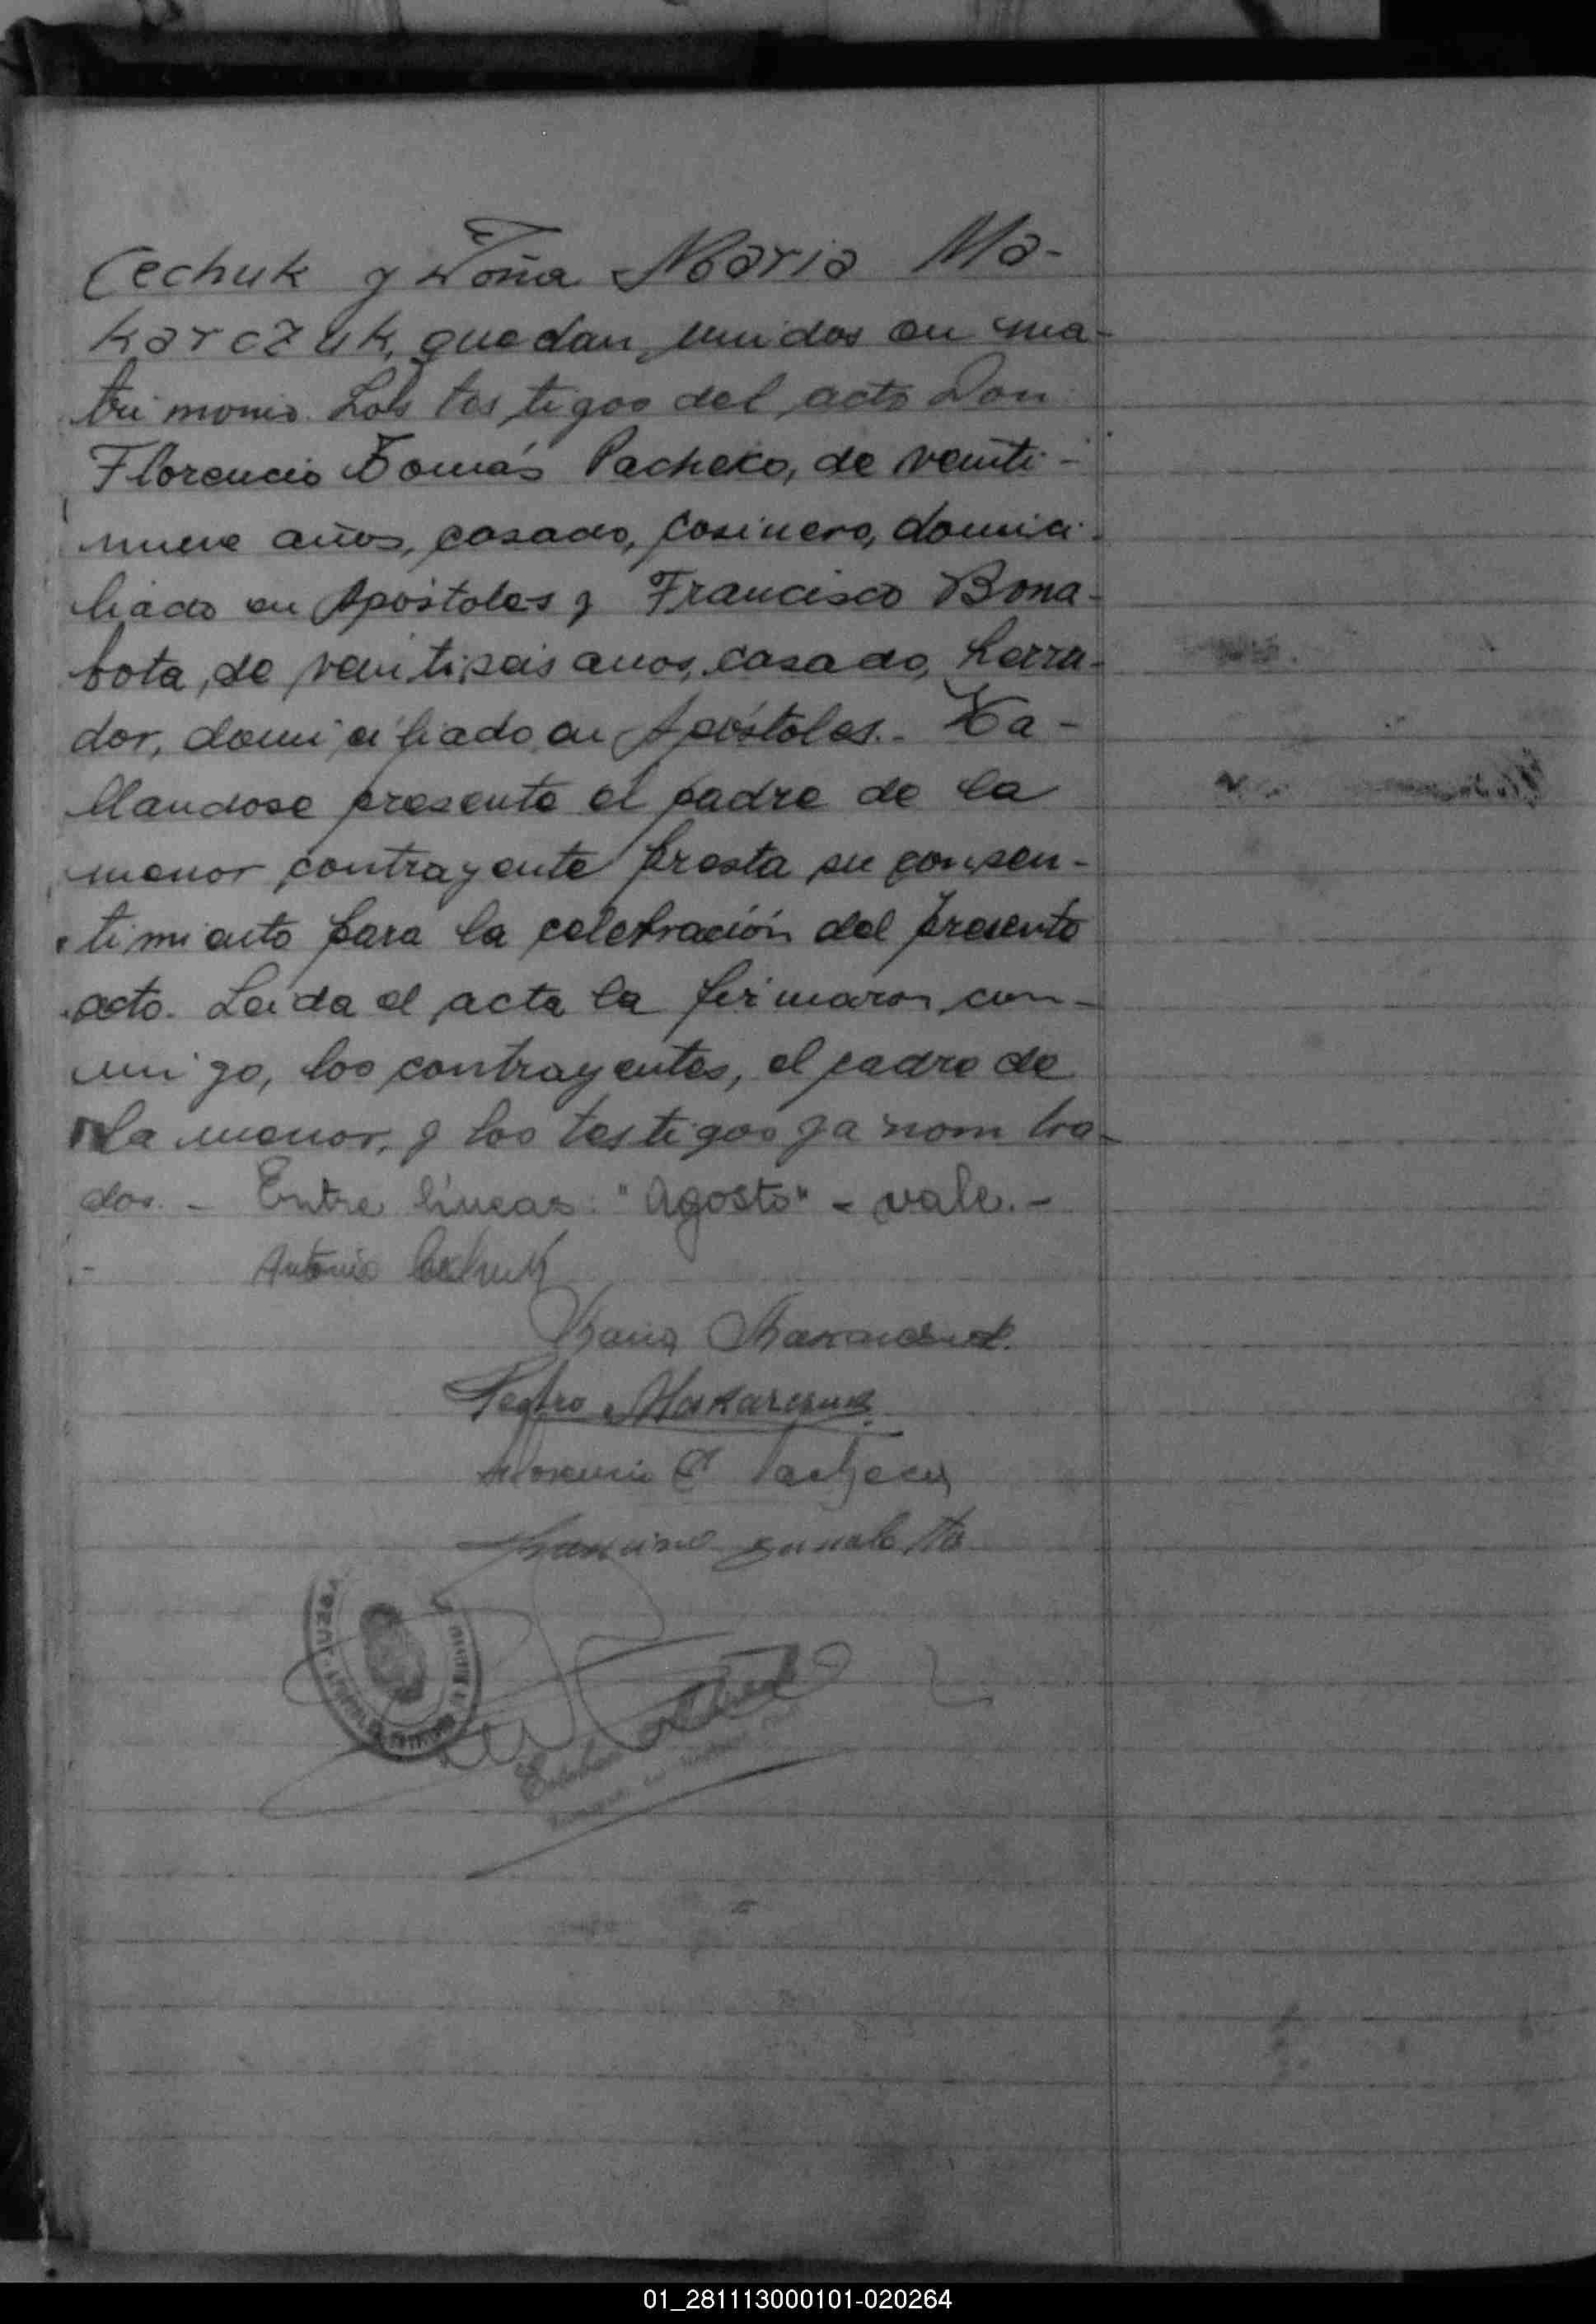 Cechuk y Doña Maria Ma-
karczuk, quedan unidos en ma-
trimonio. Los testigos del acto Don
Florencio Tomás Pacheko, de veinti-
nueve años, casado, cosinero, domici-
liado en Apóstoles y Francisco Bona-
bota, de veintiseis anos, casado, herra-
dor, domiciliado en Apóstoles.- Ha-
llandose presente el padre de la
menor contrayente presta su consen-
timiento para la celebración del presente
acto. Leida el acta la firmaron con-
migo, los contrayentes, el padre de
la menor, y los testigos ya nombra-
dos. - Entre líneas: "Agosto" - vale. -
Antonio Cechuk
Maria Makarczuk.
Pedro Makarczuk
Florencio T Pacheco
Francisco
01_281113000101-020264